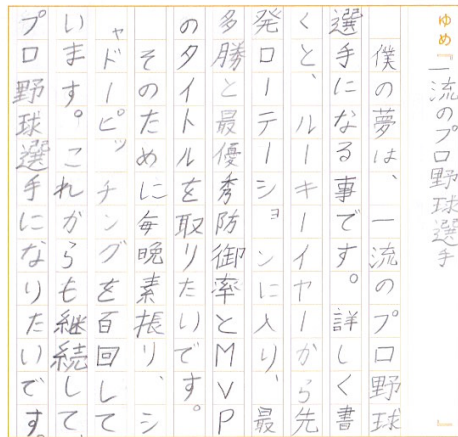 ゆめ 一流のプロ野球選手
僕の夢は、一流のプロ野球
選手になる事です。詳しく書
くと、ルーキーイヤーから先
発ローテーションに入り、最
多勝と最優秀防御率とMVP
のタイトルを取りたいです。
そのために毎晩素振り、シ
ャドーピッチングを百回して
います。これからも継続して、
プロ野球選手になりたいです。